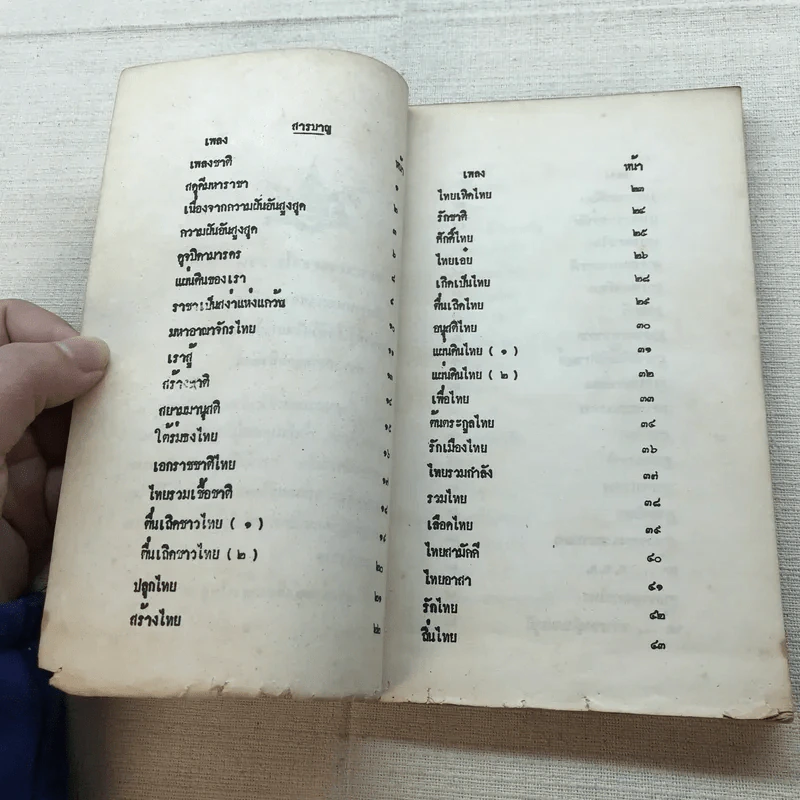 สารบาญ
เพลง หน้า
เพลงชาติ ๑
สดุดีมหาราชา ๒
เนื่องจากความฝันอันสูงสุด ๓
ความฝันอันสูงสุด ๖
ดุจบิดามารดร
แผ่นดินของเรา
ราชาเป็นสง่าแห่งแคว้น
มหาอาณาจักรไทย ๑๐
เราสู้ ๑๑
สร้างชาติ
สยามมานุสติ
ใต้ร่มธงไทย ๑๕
เอกราชชาติไทย ๑๖
ไทยรวมเชื้อชาติ ๑๗
ตื่นเถิดชาวไทย ( ๑ )
ตื่นเถิดชาวไทย ( ๒ )
ปลุกไทย ๒๐
สร้างไทย ๒๑
๒๒
เพลง หน้า
ไทยเทิดไทย ๒๓
รักชาติ ๒๔
ศักดิ์ไทย ๒๕
ไทยเอ๋ย ๒๖
เกิดเป็นไทย ๒๘
ตื่นเถิดไทย ๒๙
อนุสติไทย ๓๐
แผ่นดินไทย ( ๑ ) ๓๑
แผ่นดินไทย ( ๒ ) ๓๒
เพื่อไทย ๓๓
ต้นตระกูลไทย ๓๔
รักเมืองไทย ๓๖
ไทยรวมกำลัง ๓๗
รวมไทย ๓๘
เลือดไทย ๓๙
ไทยสามัคคี ๔๐
ไทยอาสา ๔๑
รักไทย ๔๒
ถิ่นไทย ๔๓